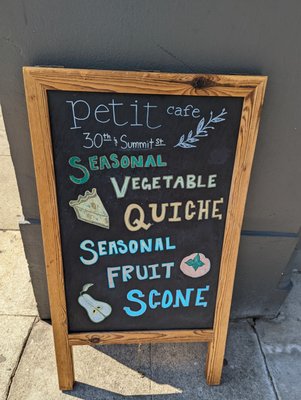 petit cafe
30th & Summit St
Seasonal
Vegetable
Quiche
Seasonal
Fruit
Scone